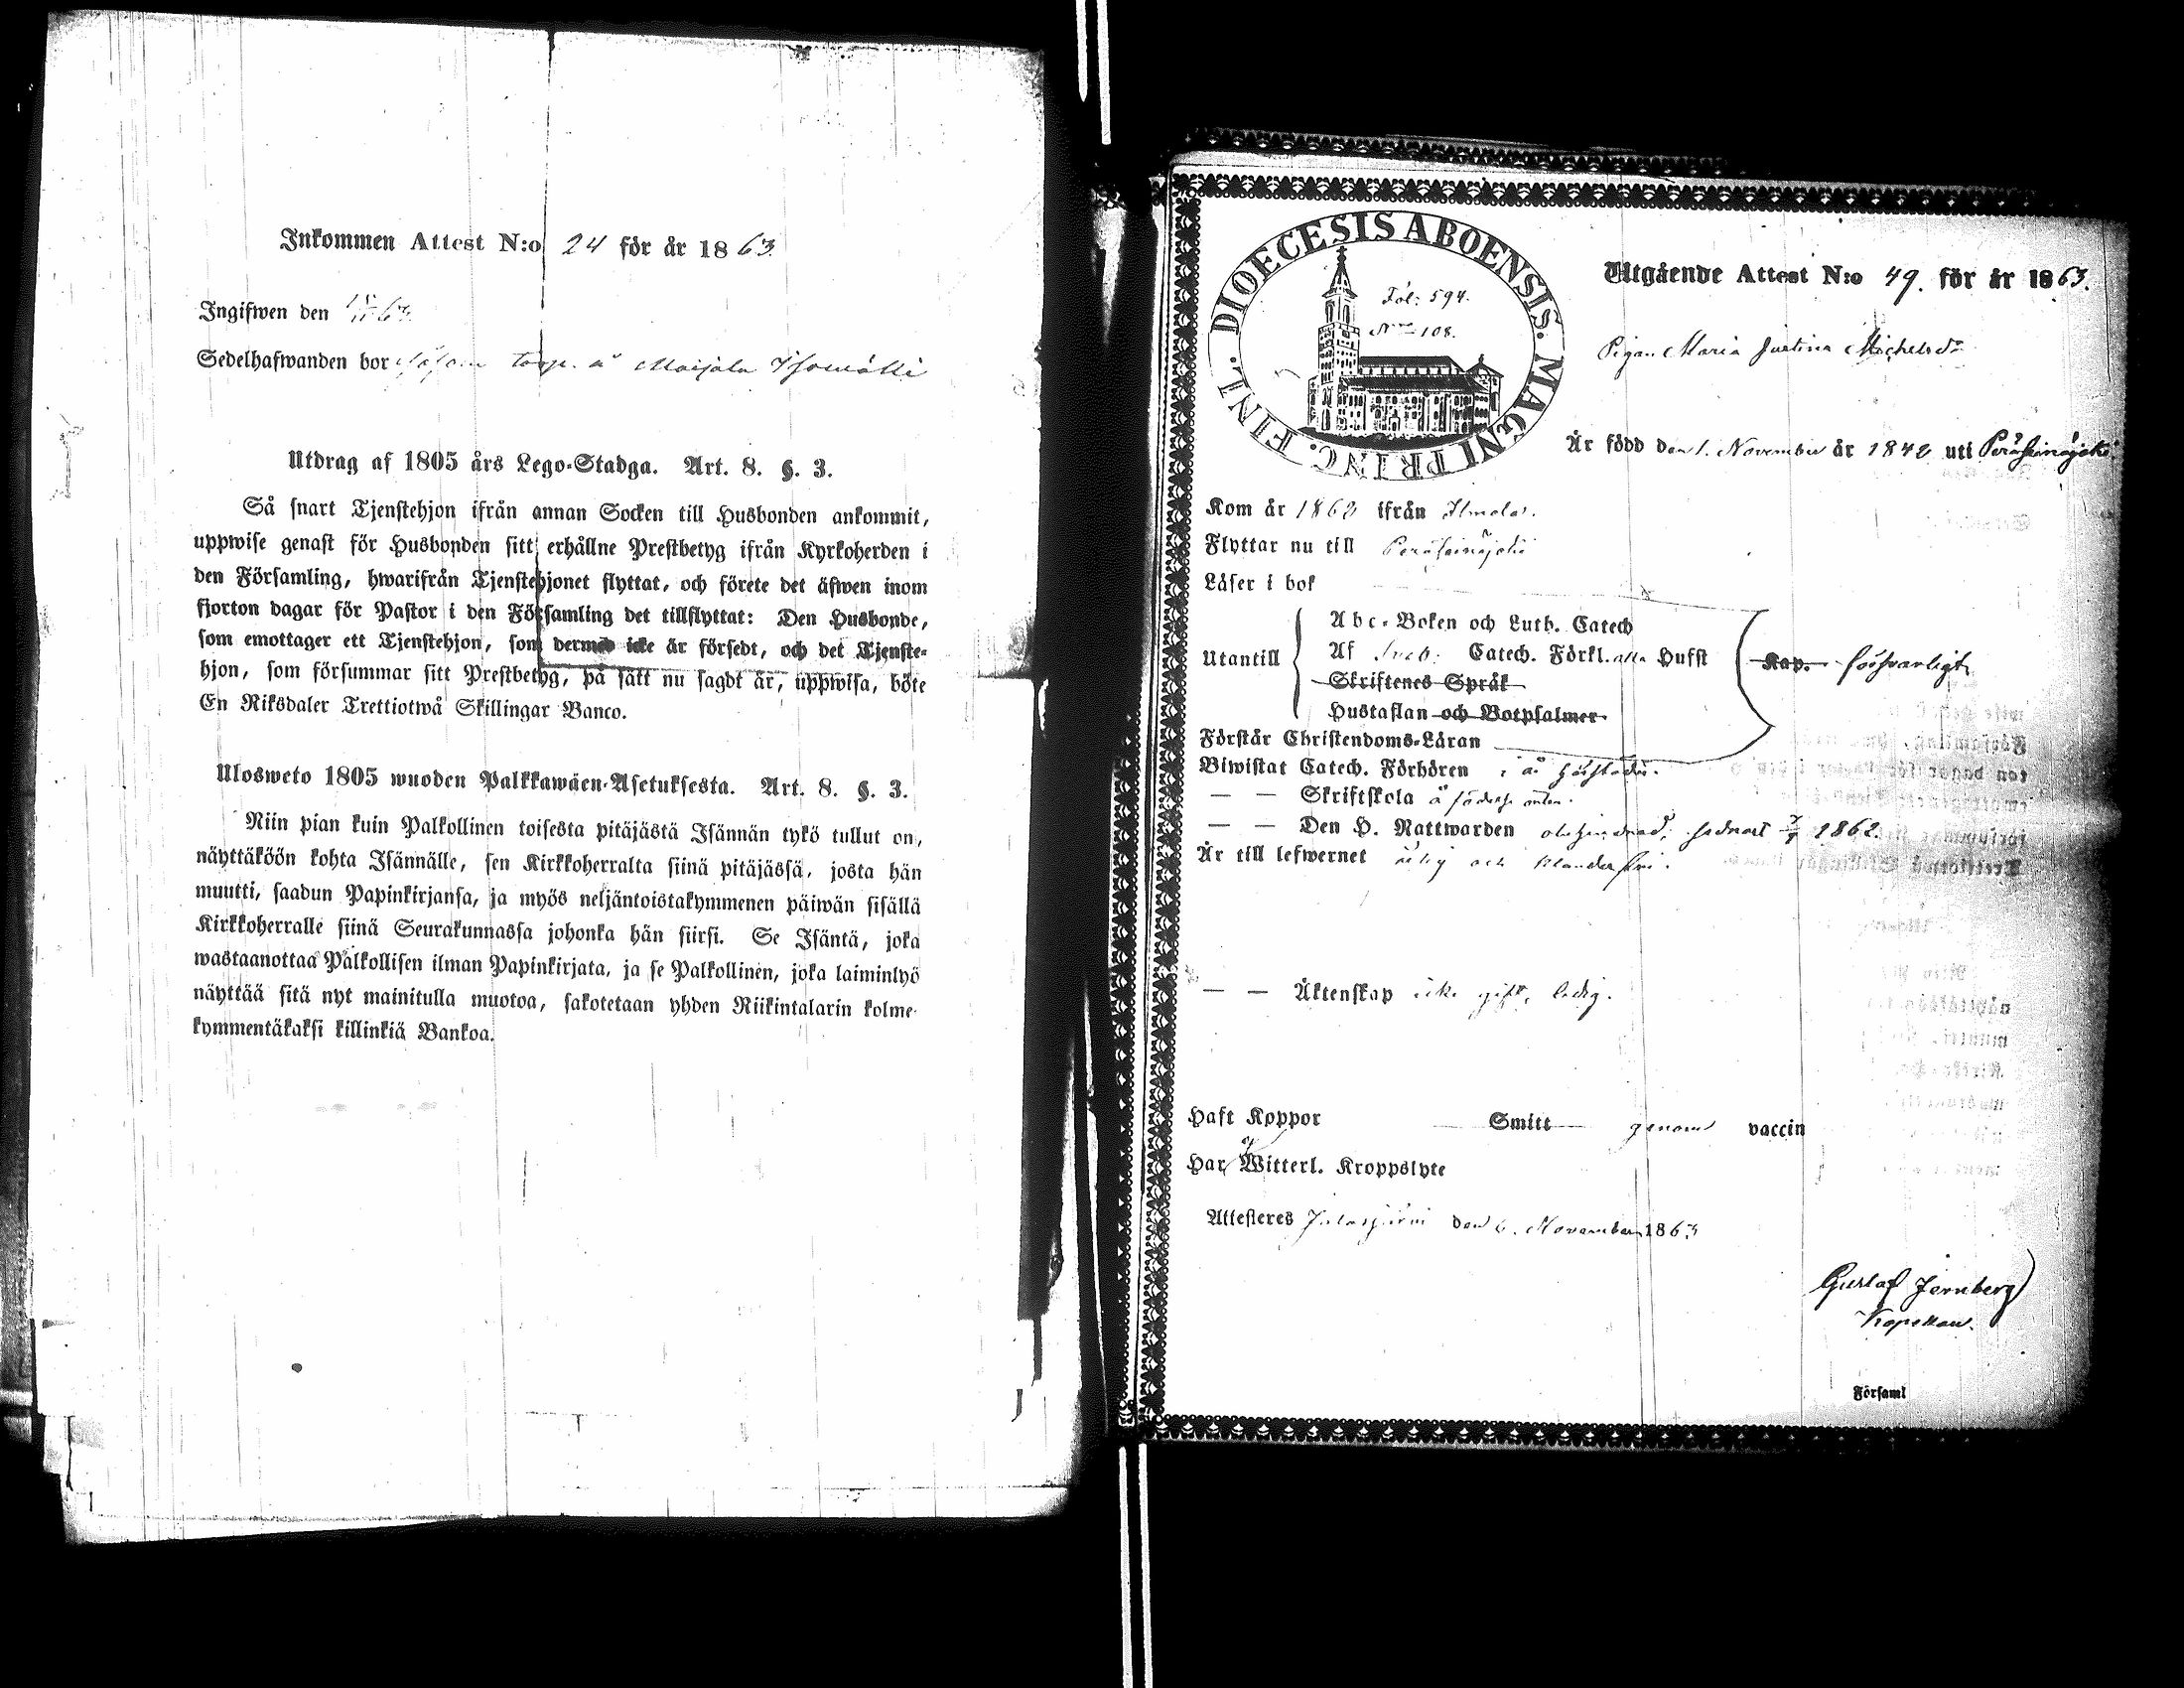 Inkommen Attest N:o 24 för år 1863.
Ingifwen den /11 63.
Sedelhafwanden bor torp. å Maijala Isomälki
Utdrag af 1805 års Lego-Stadga. Art. 8. §. 3.
Så snart Tjenstehjon ifrån annan Socken till Husbonden ankommit,
uppwise genast för Husbonden sitt erhållne Prestbetyg ifrån Kyrkoherden i
den Församling, hwarifrån Tjenstehjonet flyttat, och förete det äfwen inom
fjorton dagar för Pastor i den Församling det tillflyttat: Den Husbonde,
som emottager ett Tjenstehjon, som dermed icke är försedt, och det Tjenste-
hjon, som försummar sitt Prestbetyg, på sätt nu sagdt är, uppwisa, böte
En Riksdaler Trettiotwå Skillingar Banco.
Ulosweto 1805 wuoden Palkkawäen-Asetuksesta. Art. 8. §. 3.
Niin pian kuin Palkollinen toisesta pitäjästä Isännän tykö tullut on,
näyttäköön kohta Isännälle, sen Kirkkoherralta siinä pitäjässä, josta hän
muutti, saadun Papinkirjansa, ja myös neljäntoistakymmenen päiwän sisällä
Kirkkoherralle siinä Seurakunnassa johonka hän siirsi. Se Isäntä, joka
wastaanottaa Palkollisen ilman Papinkirjata, ja se Palkollinen, joka laiminlyö
näyttää sitä nyt mainitulla muotoa, sakotetaan yhden Riikintalarin kolme-
kymmentäkaksi killinkiä Bankoa.
DIOECESIS ABOENSIS. MAGNI PRINC. FINL.
Fol: 594.
N:ro 108.
Utgående Attest N:o 49. för år 1863.
Pigan Maria Justina Michelsdr
Är född den 1. November år 1842 uti Peräseinäjoki
Kom år 1862 ifrån Ilmola.
Flyttar nu till Peräseinäjoki
Läser i bok
Utantill
Abc-Boken och Luth. Catech
Af Sveb: Catech. Förkl. alla Hufst
Skriftenes Språk
Hustaflan och Botpsalmer
Kap. försvarligt
Förstår Christendoms-Läran
Biwistat Catech. Förhören i å
— — Skriftskola å födelse orten.
— — Den H. Nattwarden obehindrad, sednast 1862.
Är till lefwernet ärlig och klanderfri.
— — Äktenskap icke gift, ledig.
Haft Koppor Smitt genom vaccin
Har Witterl. Kroppslyte
Attesteres Jalasjärvi den 6. November 1863
Gustaf Jernberg
Kapellan.
Församl